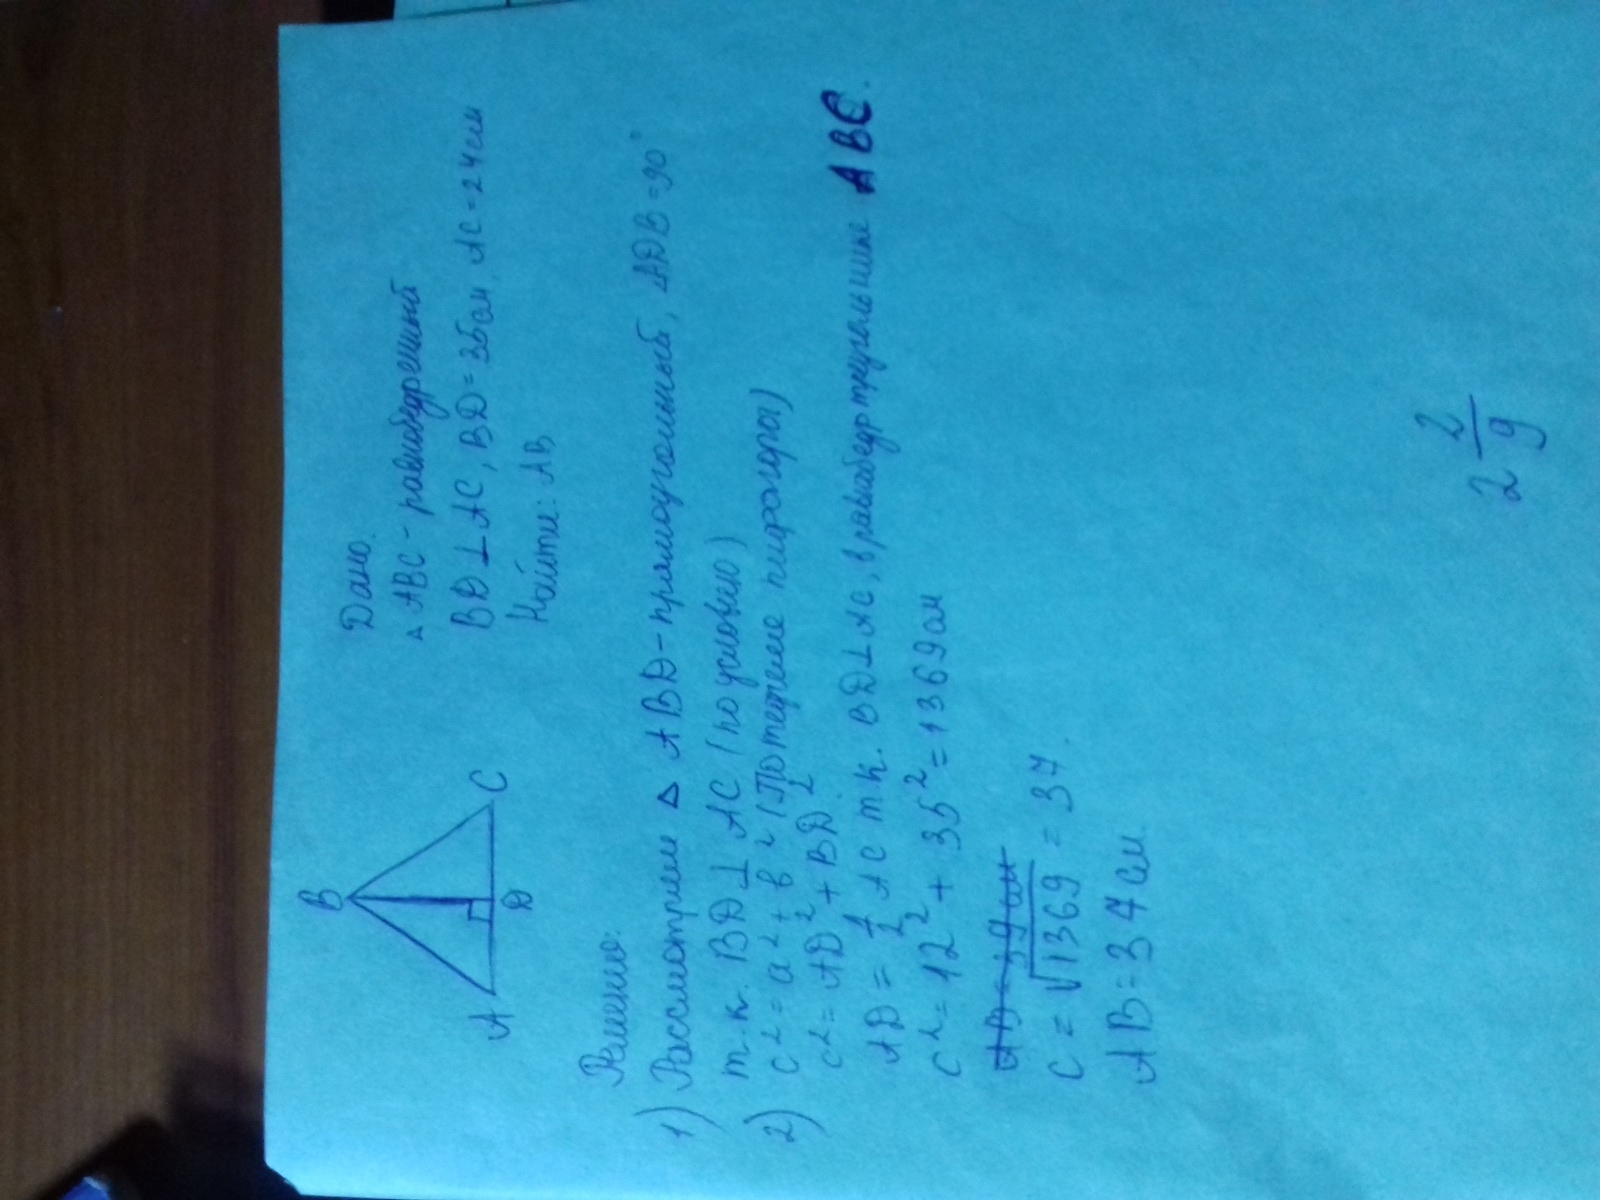 B
A
D
C
Дано.
△ ABC - равнобедренный
BD ⊥ AC, BD = 35 см, AC = 24 см
Найти: AB
Решение:
1) Рассмотрим △ ABD - прямоугольный, ∠ADB = 90°
т.к. BD ⊥ AC (по условию)
2) c² = a² + b² (По теореме пифагоры)
c² = AD² + BD²
AD = 1/2 AC т.к. BD ⊥ AC, в равнобедр треугольнике ABC.
c² = 12² + 35² = 1369 см
AB = 39 см
C = √1369 = 37.
AB = 37 см
2 2/9